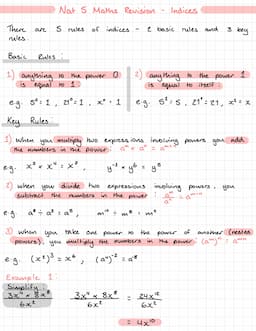 Nat 5 Maths Revision - Indices
There are 5 rules of indices - 2 basic rules and 3 key
rules.
Basic Rules:
1) anything to the power 0
is equal to 1
e.g. 5⁰ = 1, 21⁰ = 1, x⁰ = 1
2) anything to the power 1
is equal to itself
e.g. 5¹ = 5, 21¹ = 21, x¹ = x
Key Rules:
1) When you multiply two expressions involving powers you add
the numbers in the power.
2) when you divide two expressions involving powers, you
subtract the numbers in the power.
3) When you take one power to the power of another (nested
powers), you multiply the numbers in the power.
Example 1:
Simplify:
= 4x¹⁰